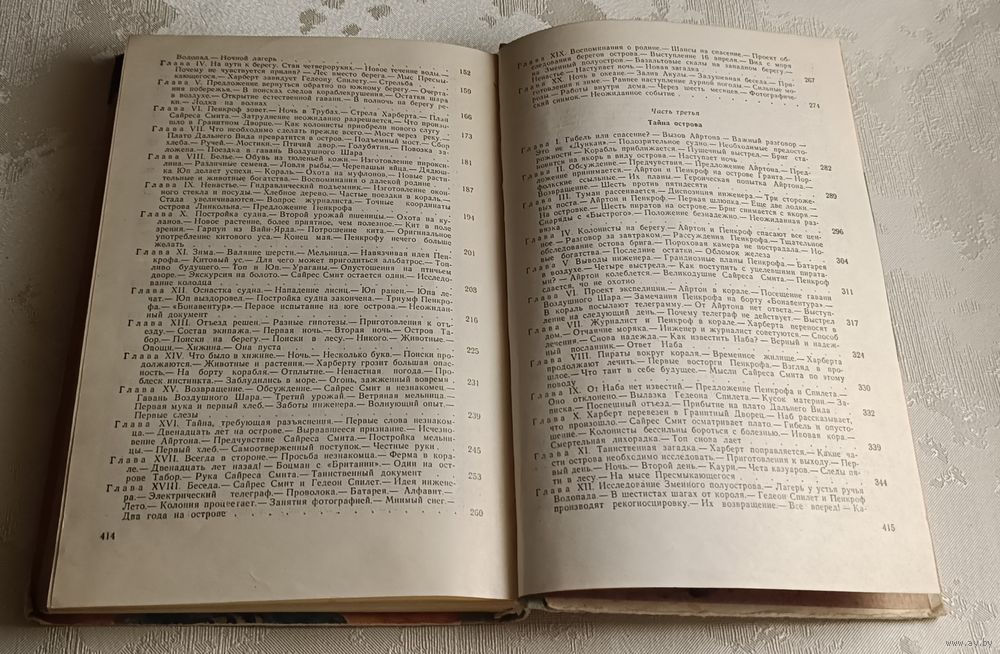 Водопад.— Ночной лагерь
Глава IV. На пути к берегу. Стая четвероруких.— Новое течение воды.— 152
Почему не чувствуется прилива? — Лес вместо берега.— Мыс Пресмы-
кающегося.— Харберт завидует Гедеону Спилету.— Стрельба
Глава V. Предложение вернуться обратно по южному берегу.— Очерта- 159
ния побережья.— В поисках следов кораблекрушения.— Остатки шара
в воздухе.— Открытие естественной гавани.— В полночь на берегу ре-
ки.— Лодка на волнах
Глава VI. Пенкроф зовет.— Ночь в Трубах.— Стрела Харберта.— План 166
Сайреса Смита.— Затруднение неожиданно разрешается.— Что произо-
шло в Гранитном Дворце.— Как колонисты приобрели нового слугу
Глава VII. Что необходимо сделать прежде всего.— Мост через реку.— 173
Плато Дальнего Вида превратится в остров.— Подъемный мост.— Сбор
хлеба.— Ручей.— Мостики.— Птичий двор.— Голубятня.— Повозка за-
ложена.— Поездка в гавань Воздушного Шара
Глава VIII. Белье.— Обувь из тюленьей кожи.— Изготовление пирокси- 181
лина.— Различные семена.— Ловля рыбы.— Черепашьи яйца.— Дядюш-
ка Юп делает успехи.— Кораль.— Охота на муфлонов.— Новые расти-
тельные и животные богатства.— Воспоминания о далекой родине
Глава IX. Ненастье.— Гидравлический подъемник.— Изготовление окон- 187
ного стекла и посуды.— Хлебное дерево.— Частые поездки в кораль.—
Стада увеличиваются.— Вопрос журналиста.— Точные координаты
острова Линкольна.— Предложение Пенкрофа
Глава X. Постройка судна.— Второй урожай пшеницы.— Охота на ку- 194
ланов.— Новое растение, более приятное, чем полезное.— Кит в поле
зрения.— Гарпун из Вайн-Ярда.— Потрошение кита.— Оригинальное
употребление китового уса.— Конец мая.— Пенкрофу нечего больше
желать
Глава XI. Зима.— Валяние шерсти.— Мельница.— Навязчивая идея Пен- 201
крофа.— Китовый ус.— Для чего может пригодиться альбатрос.— Топ-
ливо будущего.— Топ и Юп.— Ураганы.— Опустошения на птичьем
дворе.— Экскурсия на болото.— Сайрес Смит остается один.— Исследо-
вание колодца
Глава XII. Оснастка судна.— Нападение лисиц.— Юп ранен.— Юпа ле- 203
чат.— Юп выздоровел.— Постройка судна закончена.— Триумф Пенкро-
фа.— «Бонавентур».— Первое испытание на юге острова.— Неожидан-
ный документ
Глава XIII. Отъезд решен.— Разные гипотезы.— Приготовления к отъ- 216
езду.— Состав экипажа.— Первая ночь.— Вторая ночь.— Остров Та-
бор.— Поиски на берегу.— Поиски в лесу.— Никого.— Животные.—
Овощи.— Хижина.— Она пуста
Глава XIV. Что было в хижине.— Ночь.— Несколько букв.— Поиски про- 225
должаются.— Животные и растения.— Харберту грозит большая опас-
ность.— На борту корабля.— Отплытие.— Ненастная погода.— Про-
блеск инстинкта.— Заблудились в море.— Огонь, зажженный вовремя
Глава XV. Возвращение.— Обсуждение.— Сайрес Смит и незнакомец.— 231
Гавань Воздушного Шара.— Третий урожай.— Ветряная мельница.—
Первая мука и первый хлеб.— Заботы инженера.— Волнующий опыт.—
Первые слезы
Глава XVI. Тайна, требующая разъяснения.— Первые слова незнаком- 239
ца.— Двенадцать лет на острове.— Вырвавшееся признание.— Исчезно-
вение Айртона.— Предчувствие Сайреса Смита.— Постройка мельни-
цы.— Первый хлеб.— Самоотверженный поступок.— Честные руки
Глава XVII. Всегда в стороне.— Просьба незнакомца.— Ферма в кора- 245
ле.— Двенадцать лет назад! — Боцман с «Британии».— Один на ост-
рове Табор.— Рука Сайреса Смита.— Таинственный документ
Глава XVIII. Беседа.— Сайрес Смит и Гедеон Спилет.— Идея инжене- 253
ра.— Электрический телеграф.— Проволока.— Батарея.— Алфавит.—
Лето.— Колония процветает.— Занятия фотографией.— Мнимый снег.—
Два года на острове 260
414
Глава XIX. Воспоминания о родине.— Шансы на спасение.— Проект об-
следования берегов острова.— Выступление 16 апреля.— Вид с моря
на Змеиный полуостров.— Базальтовые скалы на западном берегу.—
Ненастье.— Наступает ночь.— Новая загадка 267
Глава XX. Ночь в океане.— Залив Акулы.— Задушевная беседа.— При-
готовления к зиме.— Раннее наступление дурной погоды.— Сильные мо-
розы.— Работы внутри дома.— Через шесть месяцев.— Фотографиче-
ский снимок.— Неожиданное событие 274
Часть третья
Тайна острова
Глава I. Гибель или спасение? — Вызов Айртона.— Важный разговор —
Это не «Дункан».— Подозрительное судно.— Необходимые предосто-
рожности.— Корабль приближается.— Пушечный выстрел.— Бриг ста-
новится на якорь в виду острова.— Наступает ночь 282
Глава II. Обсуждение.— Предчувствия.— Предложение Айртона.— Пред-
ложение принимается.— Айртон и Пенкроф на острове Гранта.— Нор-
фолкские ссыльные.— Их планы.— Героическая попытка Айртона.—
Возвращение.— Шесть против пятидесяти 289
Глава III. Туман рассеивается.— Диспозиция инженера.— Три стороже-
вых поста.— Айртон и Пенкроф.— Первая шлюпка.— Еще две лодки.—
На островке.— Шесть пиратов на острове.— Бриг снимается с якоря.—
Снаряды с «Быстрого».— Положение безнадежно.— Неожиданная раз-
вязка 296
Глава IV. Колонисты на берегу.— Айртон и Пенкроф спасают все цен-
ное.— Разговор за завтраком.— Рассуждения Пенкрофа.— Тщательное
обследование остова брига.— Пороховая камера не пострадала.— Но-
вые богатства.— Последние остатки.— Обломок железа 304
Глава V. Выводы инженера.— Грандиозные планы Пенкрофа.— Батарея
в воздухе.— Четыре выстрела.— Как поступить с уцелевшими пирата-
ми? — Айртон колеблется.— Великодушие Сайреса Смита.— Пенкроф
сдается, но не охотно 311
Глава VI. Проект экспедиции.— Айртон в корале.— Посещение гавани
Воздушного Шара.— Замечания Пенкрофа на борту «Бонавентура».—
В кораль посылают телеграмму.— От Айртона нет ответа.— Выступ-
ление на следующий день.— Почему телеграф не действует.— Выстрел 317
Глава VII. Журналист и Пенкроф в корале.— Харберта переносят в
дом.— Отчаяние моряка.— Инженер и журналист советуются.— Способ
лечения.— Снова надежда.— Как известить Наба? — Верный и надеж-
ный посланник.— Ответ Наба 324
Глава VIII. Пираты вокруг кораля.— Временное жилище.— Харберта
продолжают лечить.— Первые восторги Пенкрофа.— Взгляд в про-
шлое.— Что таит в себе будущее.— Мысли Сайреса Смита по этому
поводу 330
Глава IX. От Наба нет известий.— Предложение Пенкрофа и Спилета.—
Оно отклонено.— Вылазка Гедеона Спилета.— Кусок материи.— За-
писка.— Поспешный отъезд.— Прибытие на плато Дальнего Вида 332
Глава X. Харберт перевезен в Гранитный Дворец.— Наб рассказывает,
что произошло.— Сайрес Смит осматривает плато.— Гибель и опусто-
шение.— Колонисты бессильны бороться с болезнью.— Ивовая кора.—
Смертельная лихорадка.— Топ снова лает 339
Глава XI. Таинственная загадка.— Харберт поправляется.— Какие ча-
сти острова необходимо исследовать.— Приготовления к выходу.— Пер-
вый день.— Ночь.— Второй день.— Каури.— Чета казуаров.— Следы пя-
ти в лесу.— На мысе Пресмыкающегося 344
Глава XII. Исследование Змеиного полуострова.— Лагерь у устья ручья
Водопада.— В шестистах шагах от кораля.— Гедеон Спилет и Пенкроф
производят рекогносцировку.— Их возвращение.— Все вперед! — Ка-
415
www.ay.by